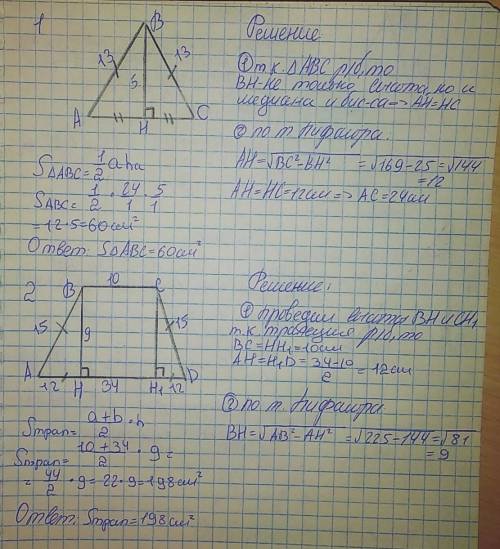 1
B
13
13
5
A
H
C
Решение
① т.к. △ABC р/б, то
BH - не только высота, но и
медиана и бис-са => AH=HC
② по т. Пифагора.
AH=√BC²-BH² = √169-25 = √144
=12
AH=HC=12см => AC=24см
S△ABC= 1/2 a ha
SABC= 1/2 · 24/1 · 5/1
=12·5=60см²
Ответ: S△ABC=60см²
2
10
B
C
15
9
15
A
12
H
34
H₁
12
D
Решение:
① проведем высоты BH и CH₁
т.к. трапеция р/б, то
BC=HH₁=10см
AH=H₁D= 34-10/2 =12см
② по т. Пифагора
BH=√AB²-AH² =√225-144=√81
=9
Sтрап= a+b/2 · h
Sтрап= 10+34/2 · 9=
= 44/2 · 9=22·9=198см²
Ответ: Sтрап=198см²